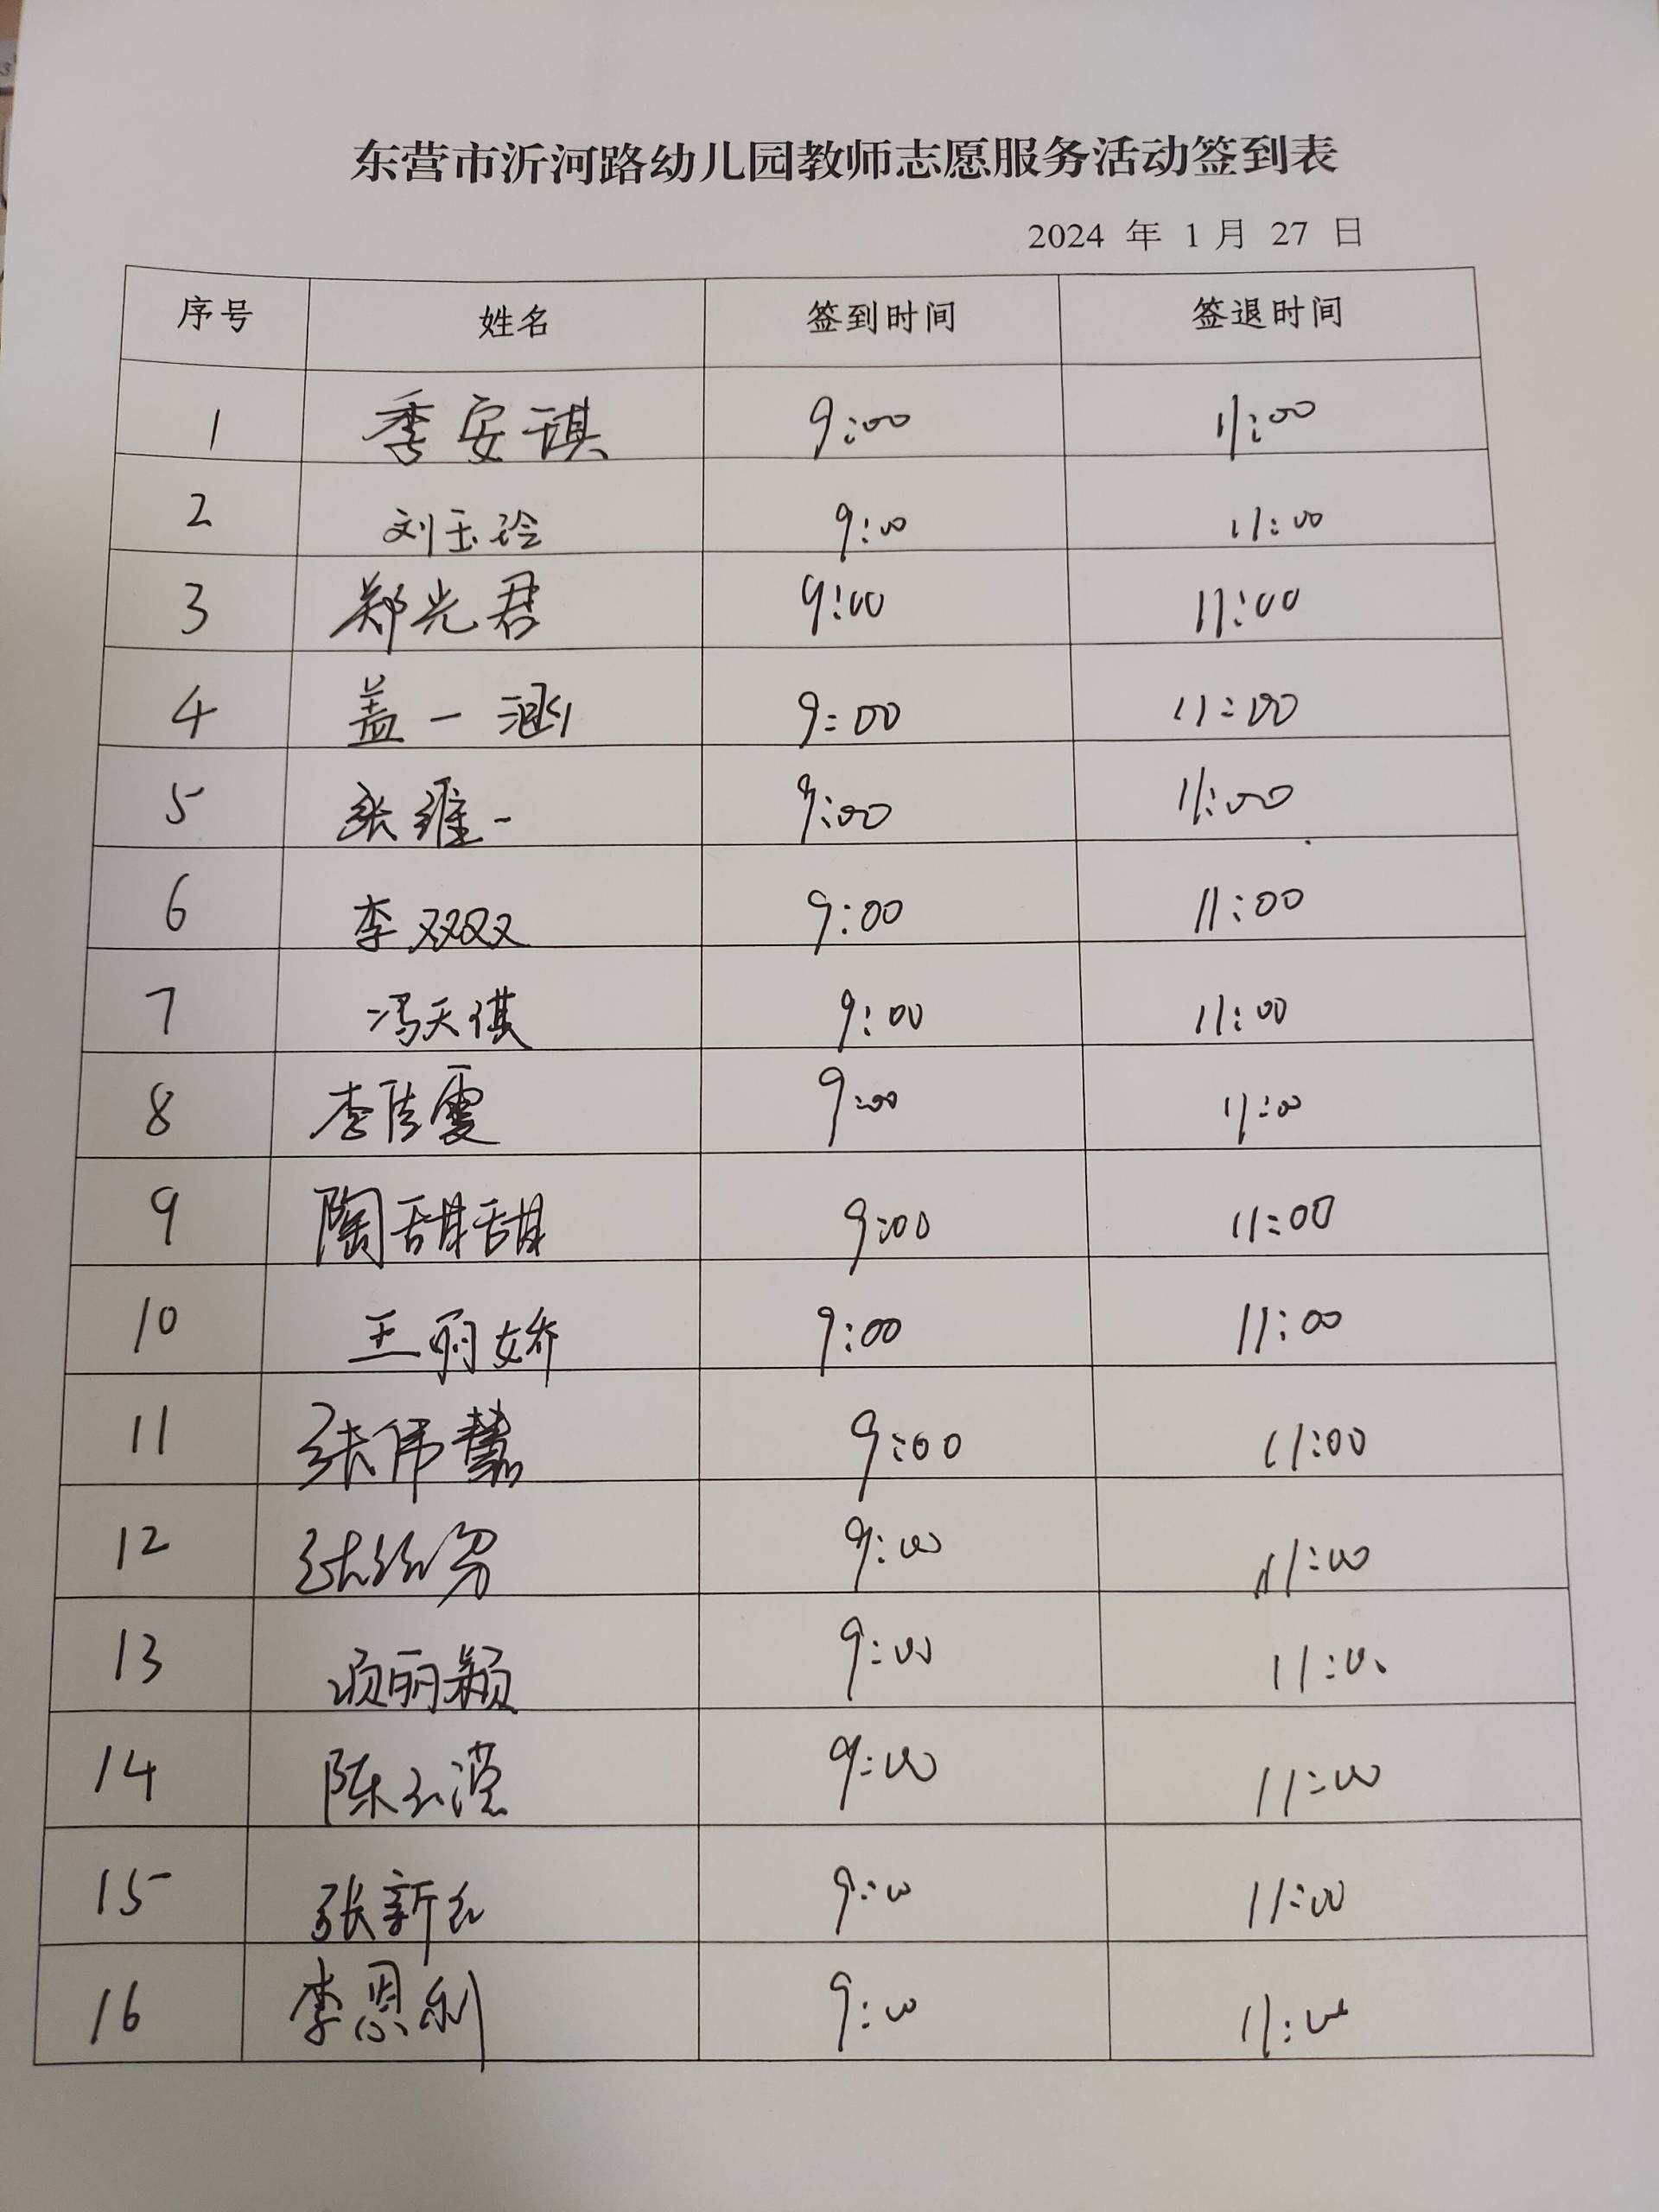 东营市沂河路幼儿园教师志愿服务活动签到表
2024 年 1 月 27 日
序号 姓名 签到时间 签退时间
1 季安琪 9:00 11:00
2 刘玉玲 9:00 11:00
3 郑光君 9:00 11:00
4 盖一涵 9:00 11:00
5 张维一 9:00 11:00
6 李双双 9:00 11:00
7 冯天祺 9:00 11:00
8 李佳雯 9:00 11:00
9 陶甜甜 9:00 11:00
10 王丽娇 9:00 11:00
11 张伟慧 9:00 11:00
12 张 9:00 11:00
13 顾丽颖 9:00 11:00
14 陈 9:00 11:00
15 张新红 9:00 11:00
16 李恩利 9:00 11:00